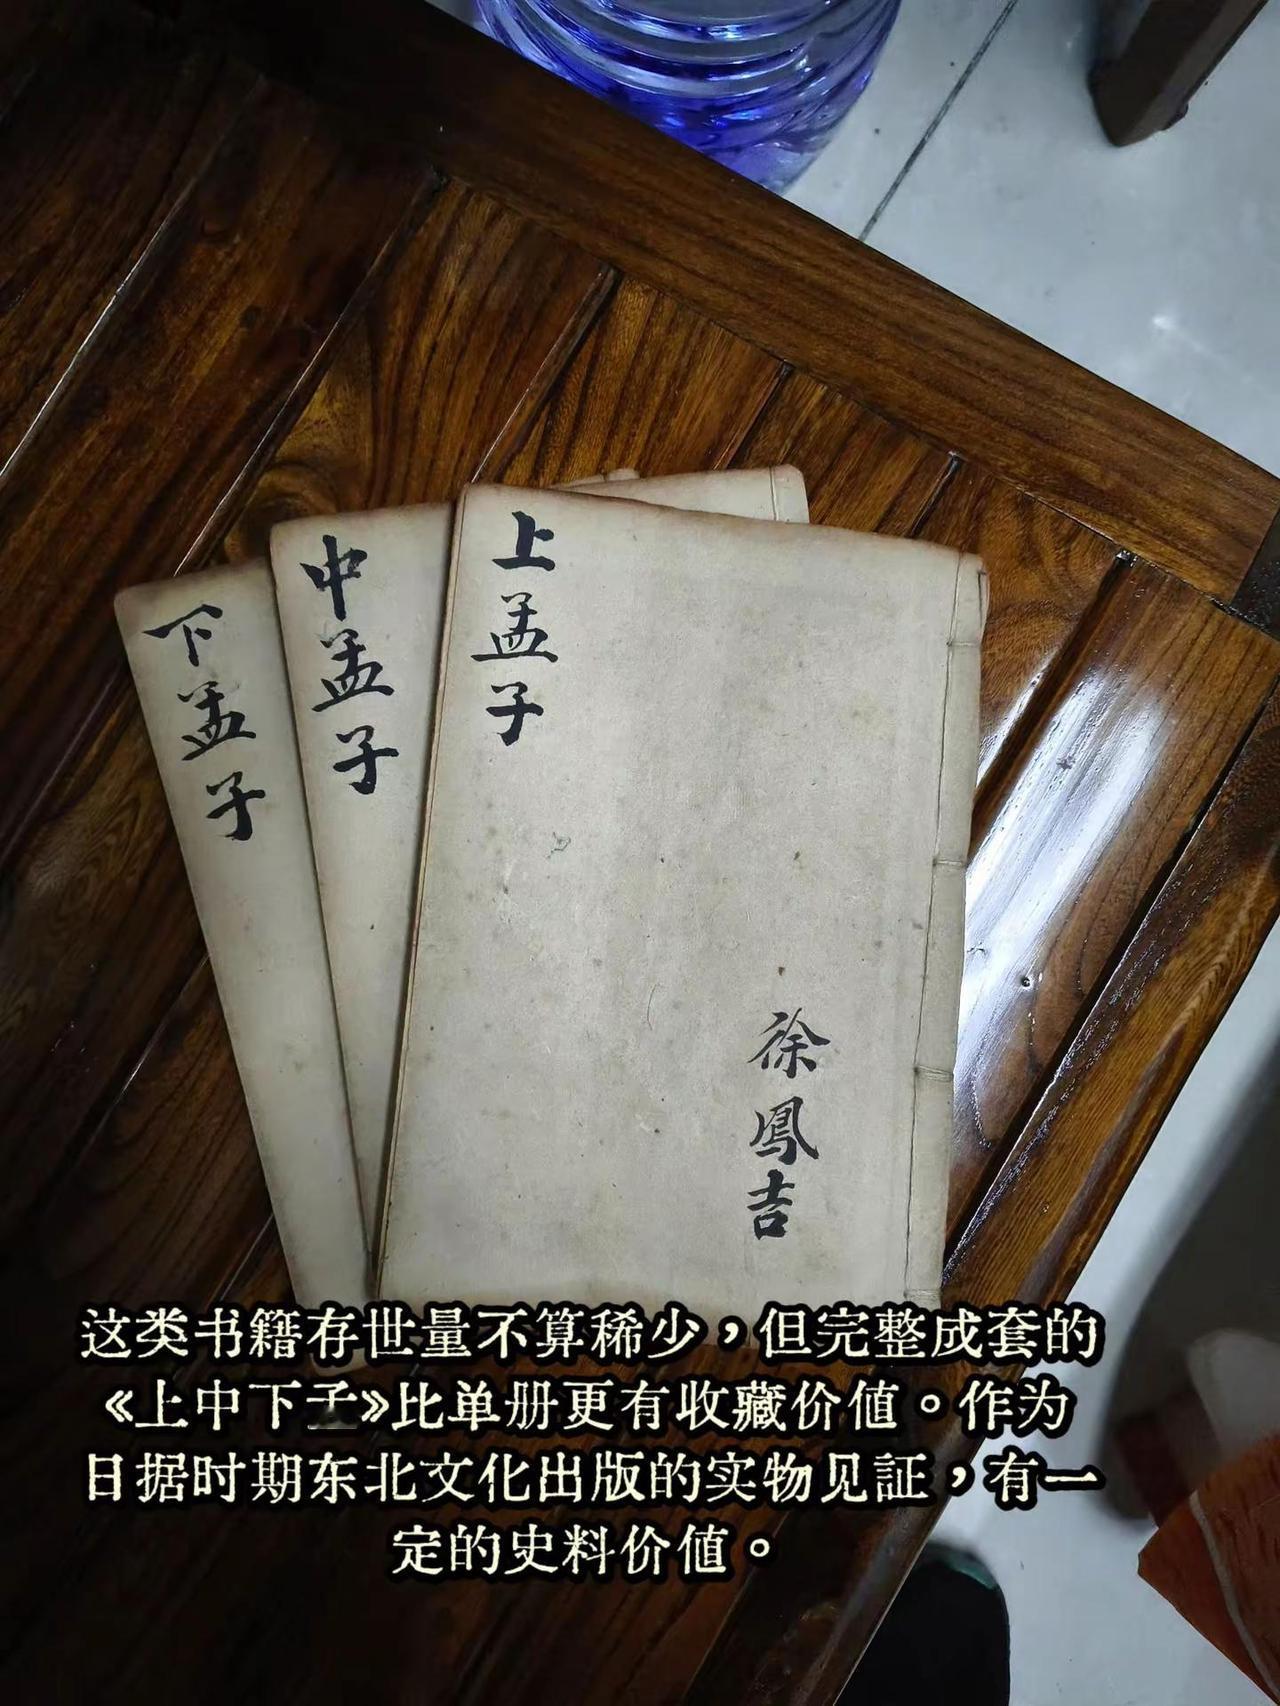 上孟子
徐鳳吉
中孟子
下孟子
这类书籍存世量不算稀少，但完整成套的
《上中下孟》比单册更有收藏价值。作为
日据时期东北文化出版的实物见証，有一
定的史料价值。